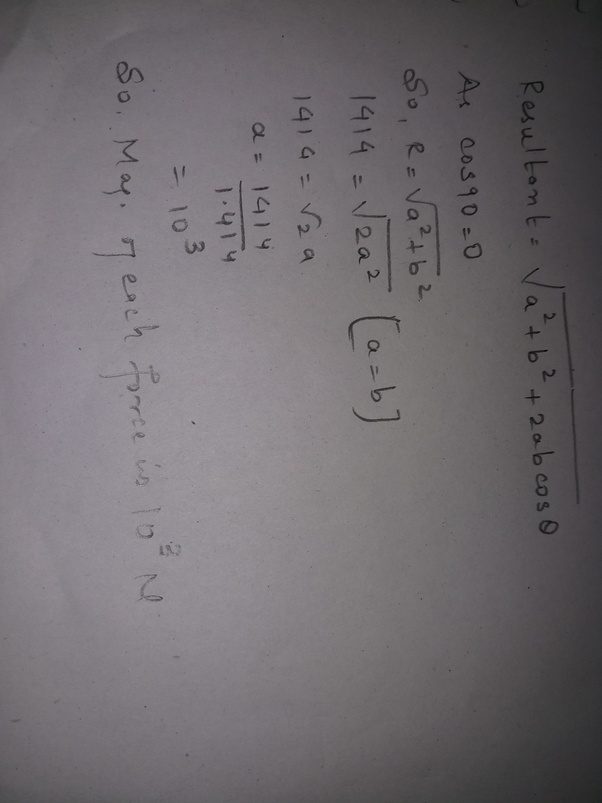 Resultant = √a² + b² + 2ab cos θ
As cos 90 = 0
So, R = √a² + b²
1414 = √2a² [a = b]
1414 = √2 a
a = 1414
1.414
= 10³
So, Mag. of each force is 10³ N